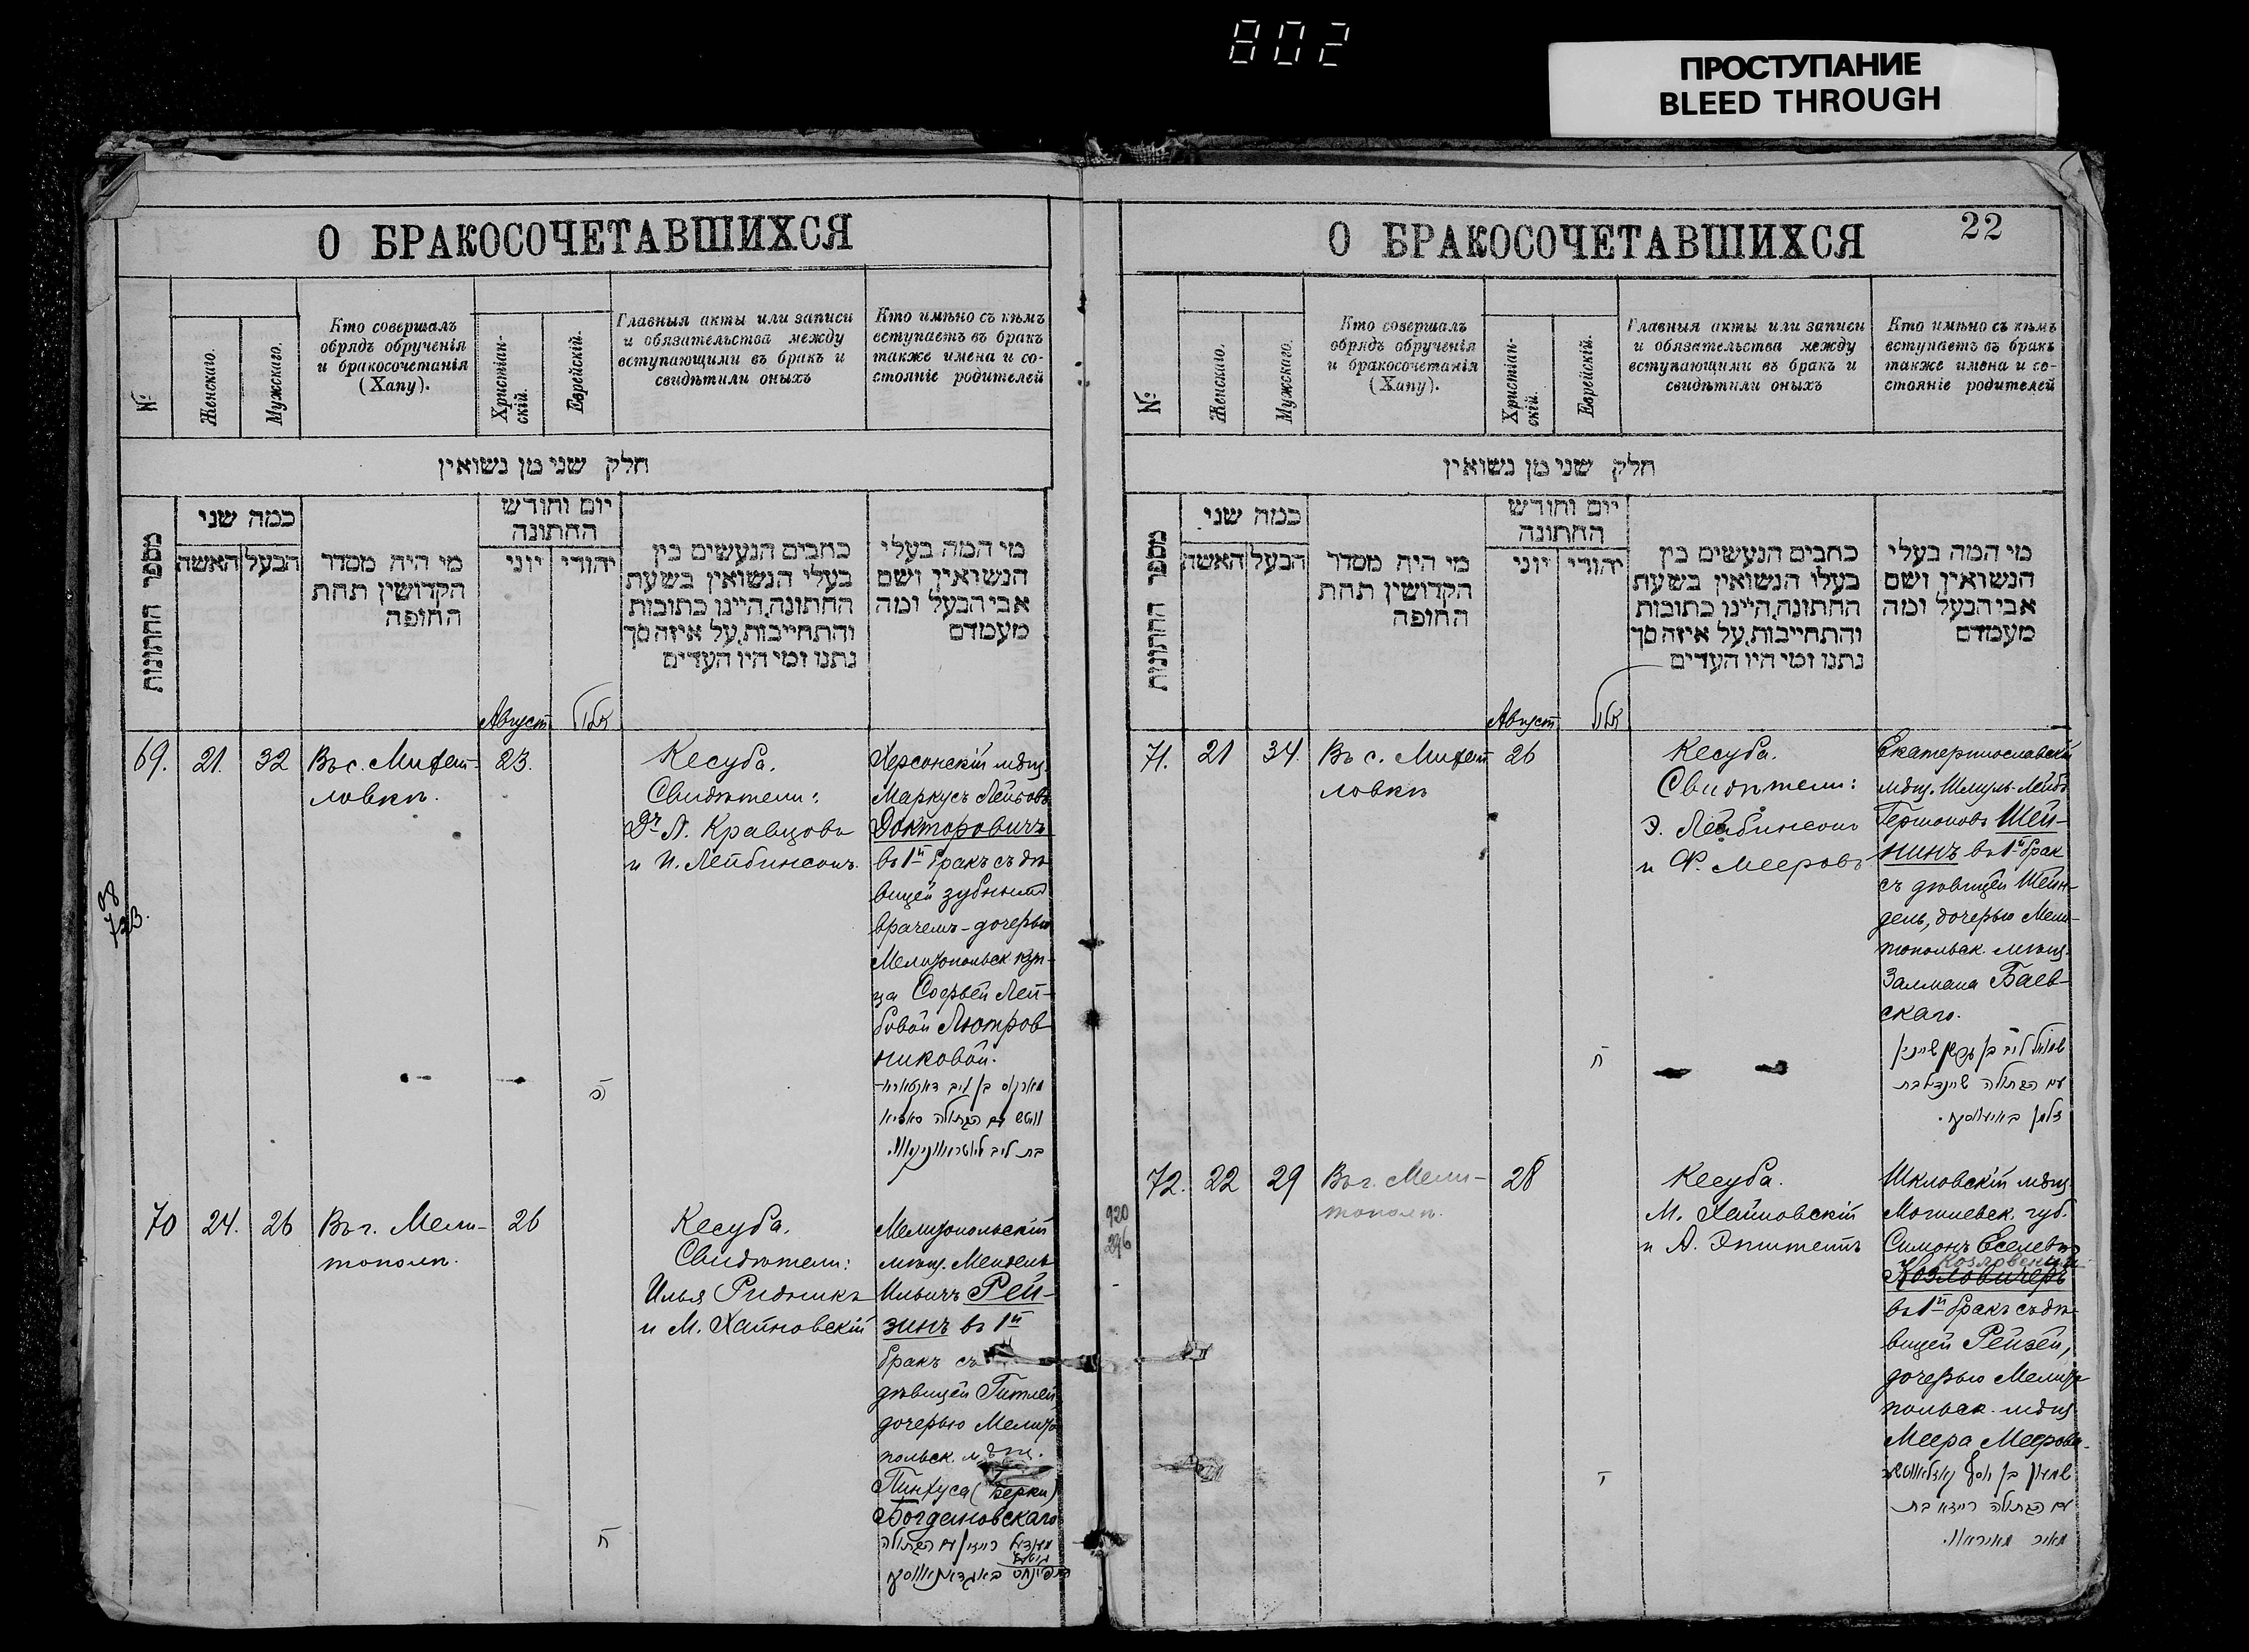 802
ПРОСТУПАНИЕ
BLEED THROUGH
О БРАКОСОЧЕТАВШИХСЯ
№
Женскаго.
Мужскаго.
Кто совершалъ
обрядъ обрученія
и бракосочетанія
(Хапу).
Христіан-
скій.
Еврейскій.
Главныя акты или записи
и обязательства между
вступающими въ бракъ и
свидѣтили оныхъ
Кто имѣно съ кѣмъ
вступаетъ въ бракъ
также имена и со-
стояніе родителей
חלק שני מן נשואין
מספר החתונות
כמה שני
האשה
הבעל
מי היה מסדר
הקדושין תחת
החופה
יום וחודש
החתונה
יוני
יהודי
כתבים הנעשים בין
בעלי הנשואין בשעת
החתונה, היינו כתובות
והתחייבות, על איזה סך
נתנו ומי היו העדים
מי המה בעלי
הנשואין ושם
אבי הבעל ומה
מעמדם
Август
אלול
69.
21.
32
Въ с. Михай-
ловкѣ.
23.
Кесуба.
Свидѣтели:
Дръ Л. Кравцовъ
и И. Лейбинсонъ.
Херсонскій мѣщ.
Маркусъ Лейбовъ
Докторовичъ
въ 1й бракъ съ дѣ-
вицей зубнымъ
врачемъ - дочерью
Мелитопольск куп-
ца Софьей Лей-
бовой Лютров-
никовой.
ה
מארקוס בן ליב דאקטארא-
וויטש עם הבתולה סאפיא
בת ליב ליוטראווניקאוו.
70
24.
26
Въ г. Мели-
тополѣ.
26
Кесуба.
Свидѣтели:
Илья Ридникъ
и М. Хайновскій
Мелитопольскій
мѣщ. Мендель
Ильичъ Рей-
зинъ въ 1й
бракъ съ
дѣвицей Гитлей,
дочерью Мелито
польск. мѣщ.
Пинхуса (Берки)
Богдановскаго
ח
מענדל רייזין עם הבתולה
גיטל
בת פינחס באגדאנאווסקי
О БРАКОСОЧЕТАВШИХСЯ
22
№
Женскаго.
Мужскаго.
Кто совершалъ
обрядъ обрученія
и бракосочетанія
(Хапу).
Христіан-
скій.
Еврейскій.
Главныя акты или записи
и обязательства между
вступающими въ бракъ и
свидѣтили оныхъ
Кто имѣно съ кѣмъ
вступаетъ въ бракъ
также имена и со-
стояніе родителей
חלק שני מן נשואין
מספר החתונות
כמה שני
האשה
הבעל
מי היה מסדר
הקדושין תחת
החופה
יום וחודש
החתונה
יוני
יהודי
כתבים הנעשים בין
בעלי הנשואין בשעת
החתונה, היינו כתובות
והתחייבות, על איזה סך
נתנו ומי היו העדים
מי המה בעלי
הנשואין ושם
אבי הבעל ומה
מעמדם
Август
אלול
71.
21
34.
Въ с. Михай
ловкѣ
26
Кесуба.
Свидѣтели:
Э. Лейбинсонъ
и Ф. Мееровъ
Екатеринославскій
мѣщ. Шмуль-Лейбъ
Гершоновъ Шей-
нинъ въ 1й брак
съ дѣвицей Шейн-
дель, дочерью Мели-
топольск. мѣщ.
Залмана Баев-
скаго.
ח
שמואל ליב בן גרשון שיינין
עם הבתולה שיינדיל בת
זלמן באיעווסקי.
72.
22
29
Въ г. Мели-
тополѣ.
28
Кесуба.
М. Хайновскій
и А. Эпштейнъ
Шкловскій мѣщ.
Могилевск. губ.
Симонъ Еселевъ
Козловскій
Козловичеръ
въ 1й бракъ съ дѣ-
вицей Рейзей,
дочерью Мелито
польск. мѣщ
Меера Меерова.
י
שמעון בן יוסף קאזלאוויטשער
עם הבתולה רייזא בת
מאיר מאיראוו.